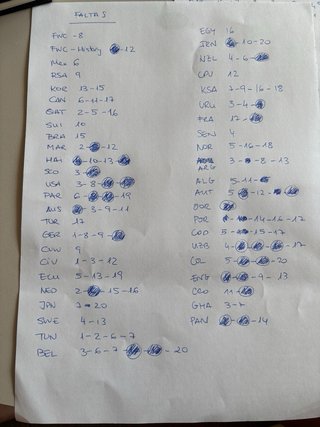 FALTAS
FWC - 8
FWC - History - 12
Mex 6
RSA 9
KOR 13-15
CAN 6-11-17
QAT 2-5-16
SUI 10
BRA 15
MAR 2 - - 12
HAI - 10-13 -
SCO 3 -
USA 3-8 -
PAR 6 - - 19
AUS - 3-9-11
TUR 17
GER 1-8-9 -
CUW 9
CIV 1-3-12
ECU 5-13-19
NED 2 - - 15-16
JPN 7 - 20
SWE 4-13
TUN 1-2-6-7
BEL 3-6-7 - - - 20
EGY 16
IRN - 10-20
NZL 4-6 -
CPV 12
KSA 7-9-16-18
URU 3-4 -
FRA 17 -
SEN 4
NOR 5-16-18
ARG 3 - - 8-13
ALG 5-11 -
AUT 5 - - 12 - -
JOR
POR - - 14-16-17
COD 5 - - 15-17
UZB 4 - - - - 17
COL 5 - - - 20
ENG - - 9-13
CRO 11 -
GHA 3-7
PAN - - 14